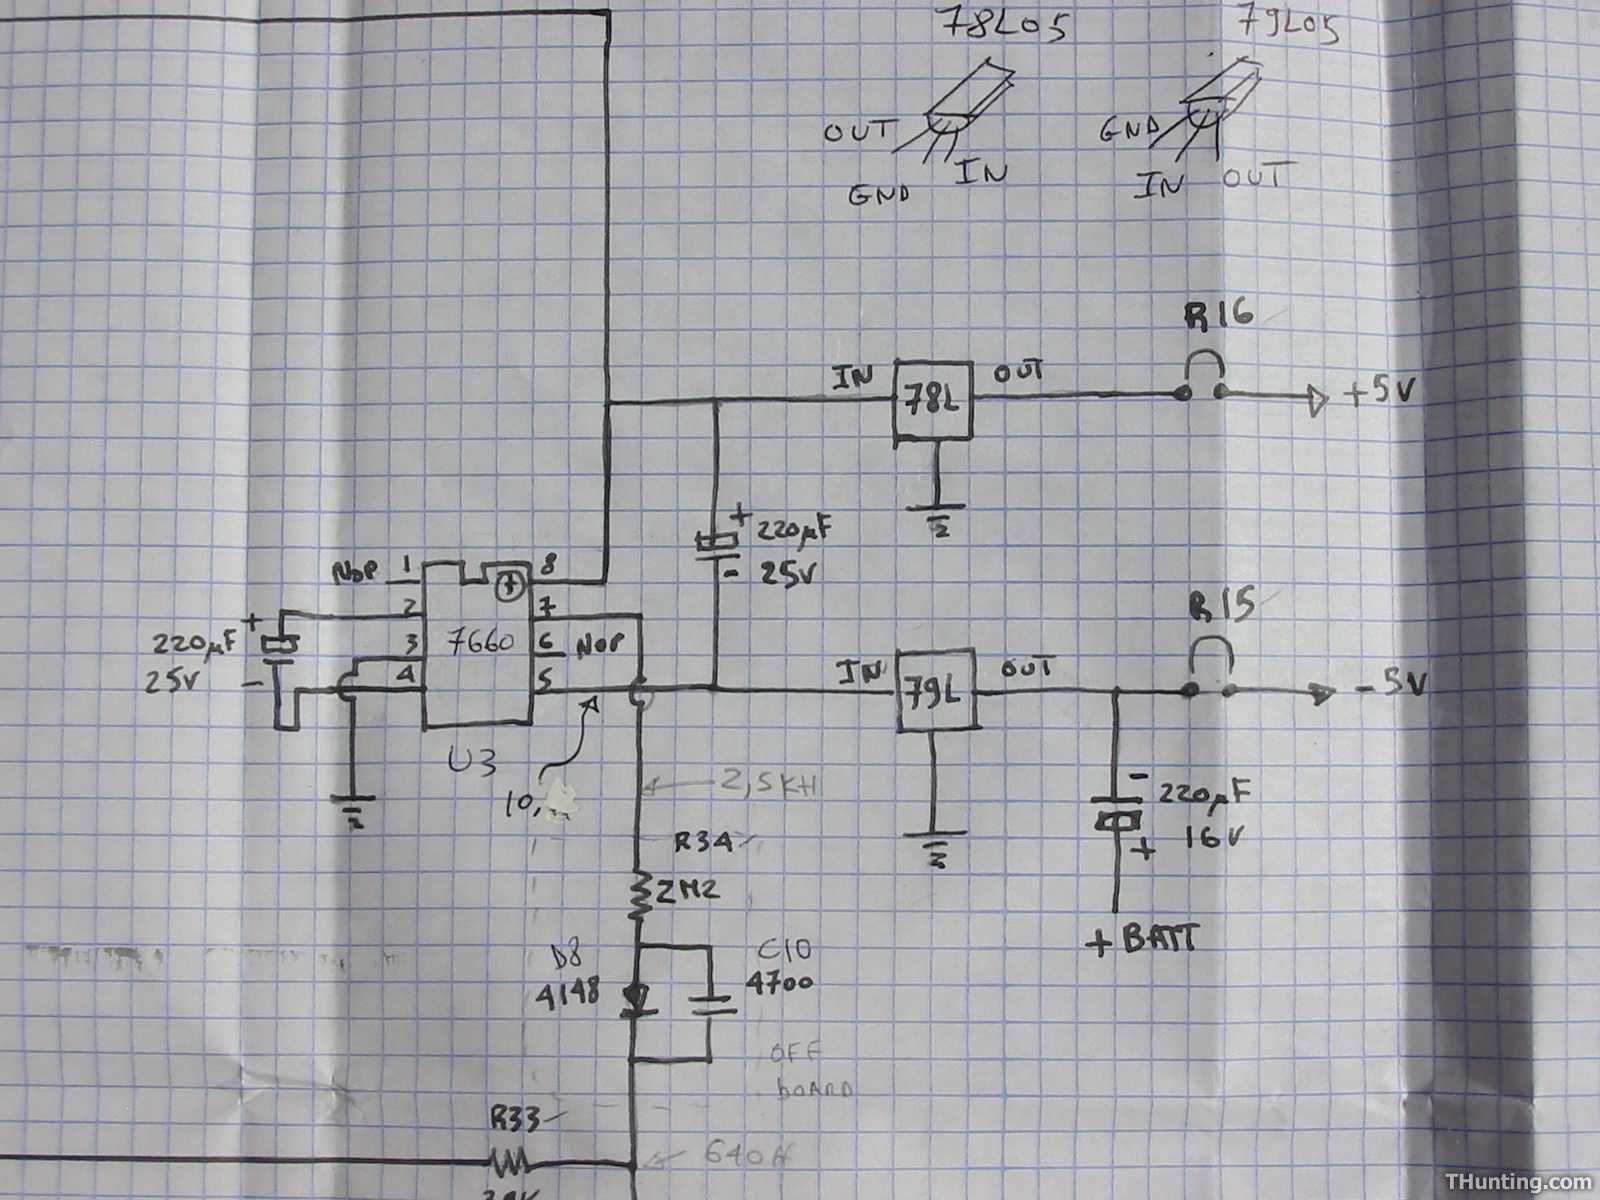 78L05
79L05
OUT
GND
IN
GND
IN
OUT
R16
IN
78L
OUT
+5V
+
220µF
- 25V
NOP
1
8
2
7
3
7660
6
NOP
4
5
+
220µF
25V
-
U3
10,
R15
IN
79L
OUT
-5V
2,5KH
-
220µF
16V
+
+BATT
R34
2M2
D8
4148
C10
4700
OFF
BOARD
R33
640H
THunting.com